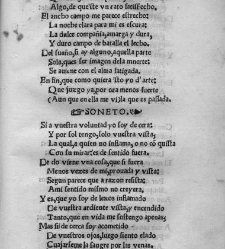 Algo, de queste un rato satisfecho,
El ancho campo me parece estrecho:
La noche clara para mi es escura:
La dulce compañia, amarga y dura,
Y duro campo de batalla el lecho.
Del sueño, si ay alguno, aquella parte
Sola, que es ser imagen dela muerte:
Se auiene con el alma fatigada,
En fin, que como quiera 'sto yo d'arte:
Que juzgo ya, por ora menos fuerte
(Aun que en ella me vi) la que es passada.
SONETO,
Si a vuestra voluntad yo soy de cera:
Y por sol tengo, solo vuestra vista,
La qual, a quien no inflama, o no cõ quista
Con su mirar, es de sentido fuera.
De do viene vna cosa, que si fuera
Menos vezes de mi prouada y vista:
Segun parece que a razon resista:
Ami sentido mismo no creyera,
Y es, que yo soy de lexos inflamado
De vuestra ardiente vista, y encendido
Tanto, que en vida me sostengo apenas,
Mas si de cerca soy acometido
De vuestros ojos, luego siento elado
Cuajarseme la sangre por las venas.